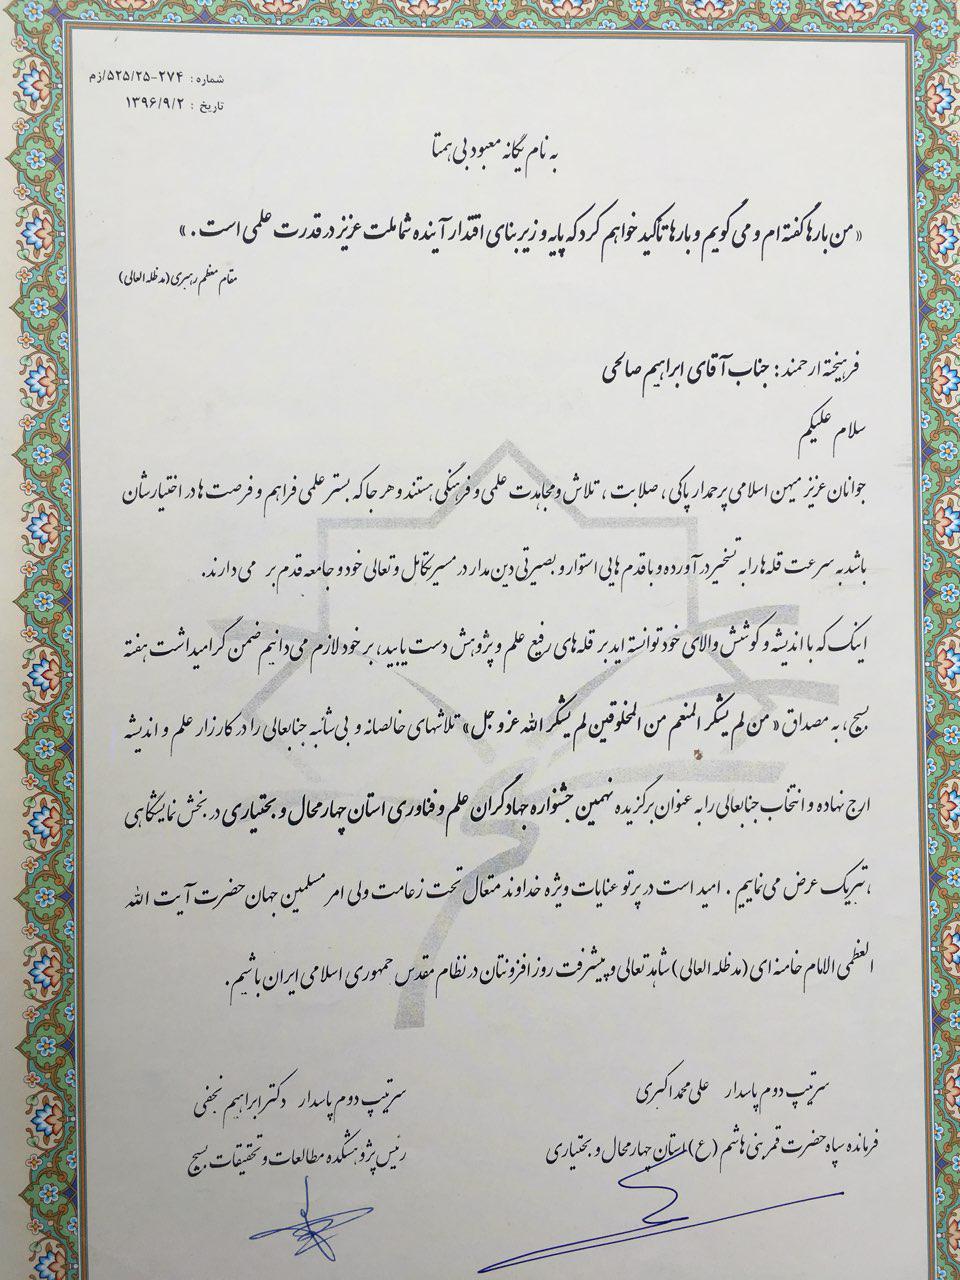 شماره : ۲۷۴-۵۲۵/۲۵/زم
تاریخ : ۱۳۹۶/۹/۲
به نام یگانه معبود بی همتا
« من بارها گفته ام و می گویم و بارها تأکید خواهم کرد که پایه و زیر بنای اقتدار آینده شما ملت عزیز در قدرت علمی است . »
مقام معظم رهبری (مد ظله العالی)
فرهیخته ارجمند : جناب آقای ابراهیم صالحی
سلام علیکم
جوانان عزیز میهن اسلامی پرچمدار پاکی ، صلابت ، تلاش و مجاهدت علمی و فرهنگی هستند و هر جا که بستر علمی فراهم و فرصت ها در اختیارشان
باشد به سرعت قله ها را به تسخیر در آورده و با قدم هایی استوار و بصیرتی دین مدار در مسیر تکامل و تعالی خود و جامعه قدم بر می دارند.
اینک که با اندیشه و کوشش والای خود توانسته اید بر قله های رفیع علم و پژوهش دست یابید، بر خود لازم می دانیم ضمن گرامیداشت هفته
بسیج، به مصداق « من لم یشکر المنعم من المخلوقین لم یشکر الله عز و جل » تلاشهای خالصانه و بی شائبه جنابعالی را در کارزار علم و اندیشه
ارج نهاده و انتخاب جنابعالی را به عنوان برگزیده نهمین جشنواره جهادگران علم و فناوری استان چهارمحال و بختیاری در بخش نمایشگاهی
، تبریک عرض می نماییم . امید است در پرتو عنایات ویژه خداوند متعال تحت زعامت ولی امر مسلمین جهان حضرت آیت الله
العظمی الامام خامنه ای (مد ظله العالی) شاهد تعالی و پیشرفت روز افزونتان در نظام مقدس جمهوری اسلامی ایران باشیم.
سرتیپ دوم پاسدار علی محمد اکبری
فرمانده سپاه حضرت قمر بنی هاشم (ع) استان چهارمحال و بختیاری
سرتیپ دوم پاسدار دکتر ابراهیم نجفی
رئیس پژوهشکده مطالعات و تحقیقات بسیج